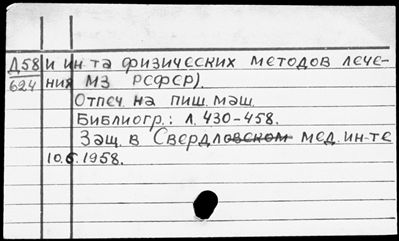 Д58 и ин-та физических методов лече-
624 ния МЗ РСФСР).
Отпеч. на пиш. маш.
Библиогр.: л. 430-458.
Защ. в Свердловском мед. ин-те
10.6.1958.